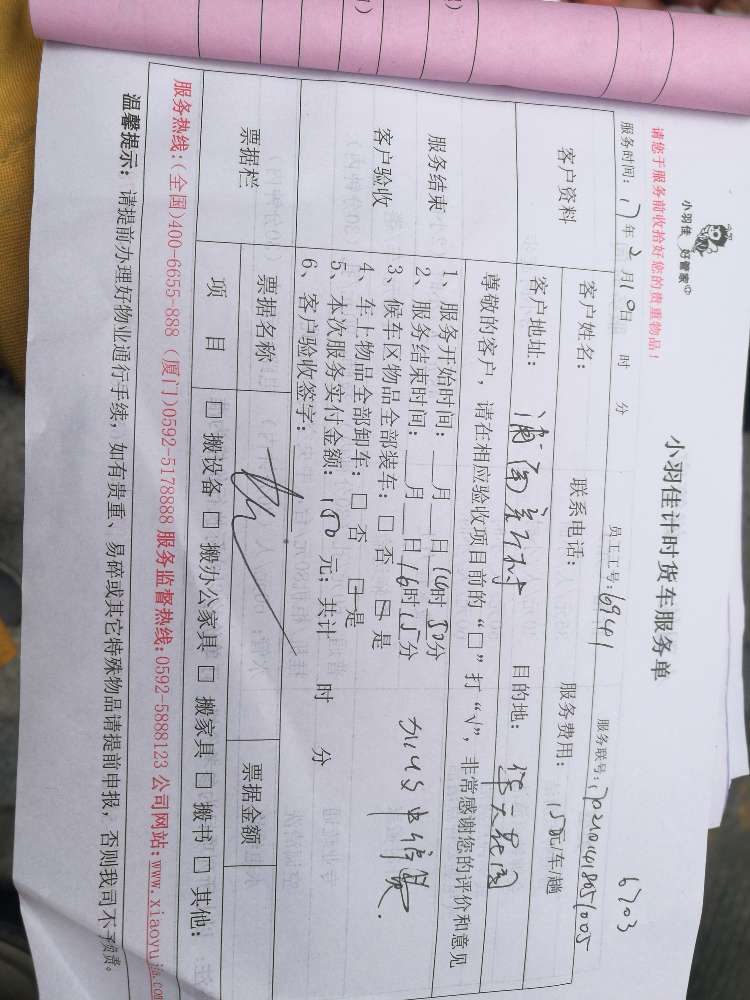 6703
小羽佳 好管家
小羽佳计时货车服务单
请您于服务前收拾好您的贵重物品！
服务时间：17年2月10日 时 分 员工工号：6941 服务联号：
客户资料 客户姓名： 联系电话： 服务费用：150元/车/趟
客户地址： 目的地：
尊敬的客户，请在相应验收项目前的“□”打“√”，非常感谢您的评价和意见
服务结束
客户验收
1、服务开始时间：__月__日14时50分
2、服务结束时间：__月__日16时15分
3、候车区物品全部装车：□ 否 □ 是
4、车上物品全部卸车：□ 否 □ 是
5、本次服务实付金额：150 元；共计 时 分
6、客户验收签字：
票据栏 票据名称 票据金额
项 目 □ 搬设备 □ 搬办公家具 □ 搬家具 □ 搬书 □ 其他：
服务热线：(全国)400-6655-888 (厦门)0592-5178888 服务监督热线：0592-5888123 公司网站：www.xiaoyujia.com
温馨提示：请提前办理好物业通行手续，如有贵重、易碎或其它特殊物品请提前申报，否则我司不予负责。